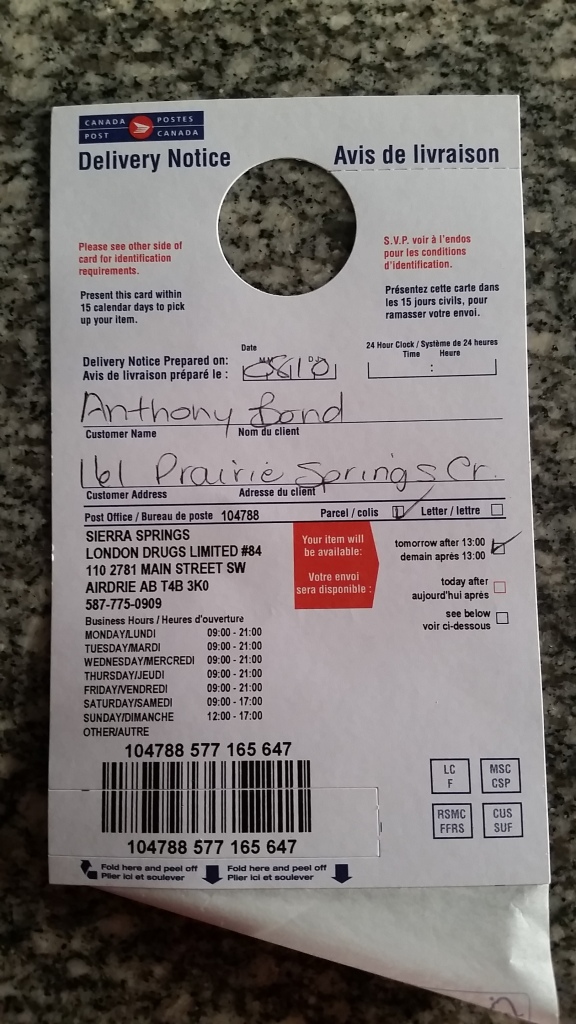 CANADA POSTES
POST CANADA
Delivery Notice Avis de livraison
Please see other side of
card for identification
requirements.
Present this card within
15 calendar days to pick
up your item.
S.V.P. voir à l'endos
pour les conditions
d'identification.
Présentez cette carte dans
les 15 jours civils, pour
ramasser votre envoi.
Date
24 Hour Clock / Système de 24 heures
Time Heure
Delivery Notice Prepared on:
Avis de livraison préparé le :
0810
:
Anthony Bond
Customer Name Nom du client
161 Prairie Springs Cr.
Customer Address Adresse du client
Post Office / Bureau de poste 104788 Parcel / colis 1 Letter / lettre
SIERRA SPRINGS
LONDON DRUGS LIMITED #84
110 2781 MAIN STREET SW
AIRDRIE AB T4B 3K0
587-775-0909
Your item will
be available:
Votre envoi
sera disponible :
tomorrow after 13:00
demain après 13:00
today after
aujourd'hui après
see below
voir ci-dessous
Business Hours / Heures d'ouverture
MONDAY/LUNDI 09:00 - 21:00
TUESDAY/MARDI 09:00 - 21:00
WEDNESDAY/MERCREDI 09:00 - 21:00
THURSDAY/JEUDI 09:00 - 21:00
FRIDAY/VENDREDI 09:00 - 21:00
SATURDAY/SAMEDI 09:00 - 17:00
SUNDAY/DIMANCHE 12:00 - 17:00
OTHER/AUTRE
104788 577 165 647
104788 577 165 647
LC
F
MSC
CSP
RSMC
FFRS
CUS
SUF
Fold here and peel off Fold here and peel off
Plier ici et soulever Plier ici et soulever